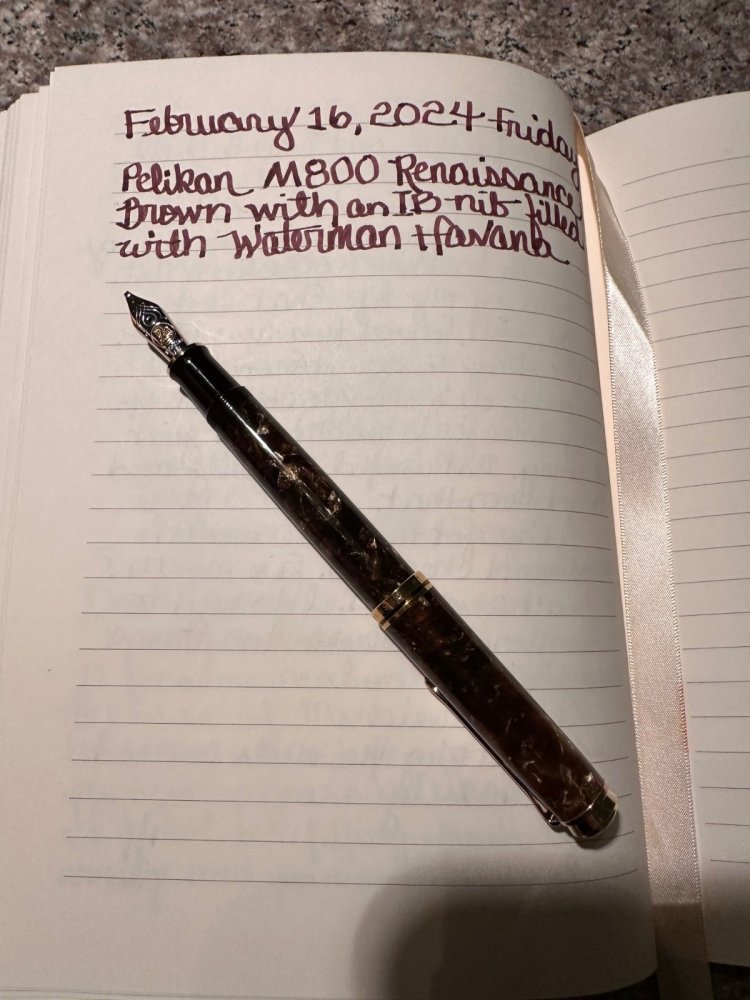 February 16, 2024 Friday
Pelikan M800 Renaissance
Brown with an IB nib filled
with Waterman Havana